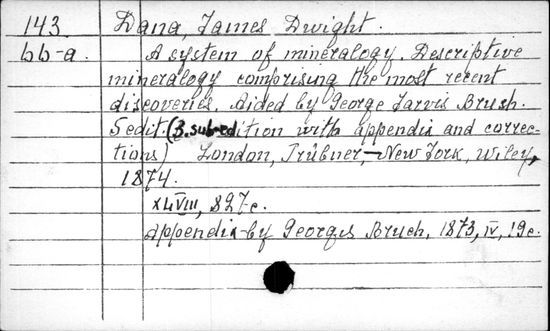 143. Dana, James Dwight.
bb-a. A system of mineralogy. Descriptive
mineralogy comprising the most recent
discoveries. Aided by George Jarvis Brush.
5 edit. (3. sub-edition with appendix and correc-
tions) London, Trübner, - New York, Wiley,
1874.
XLVIII, 827 c.
Appendix by Georges Brush, 1873, IV, 19 c.